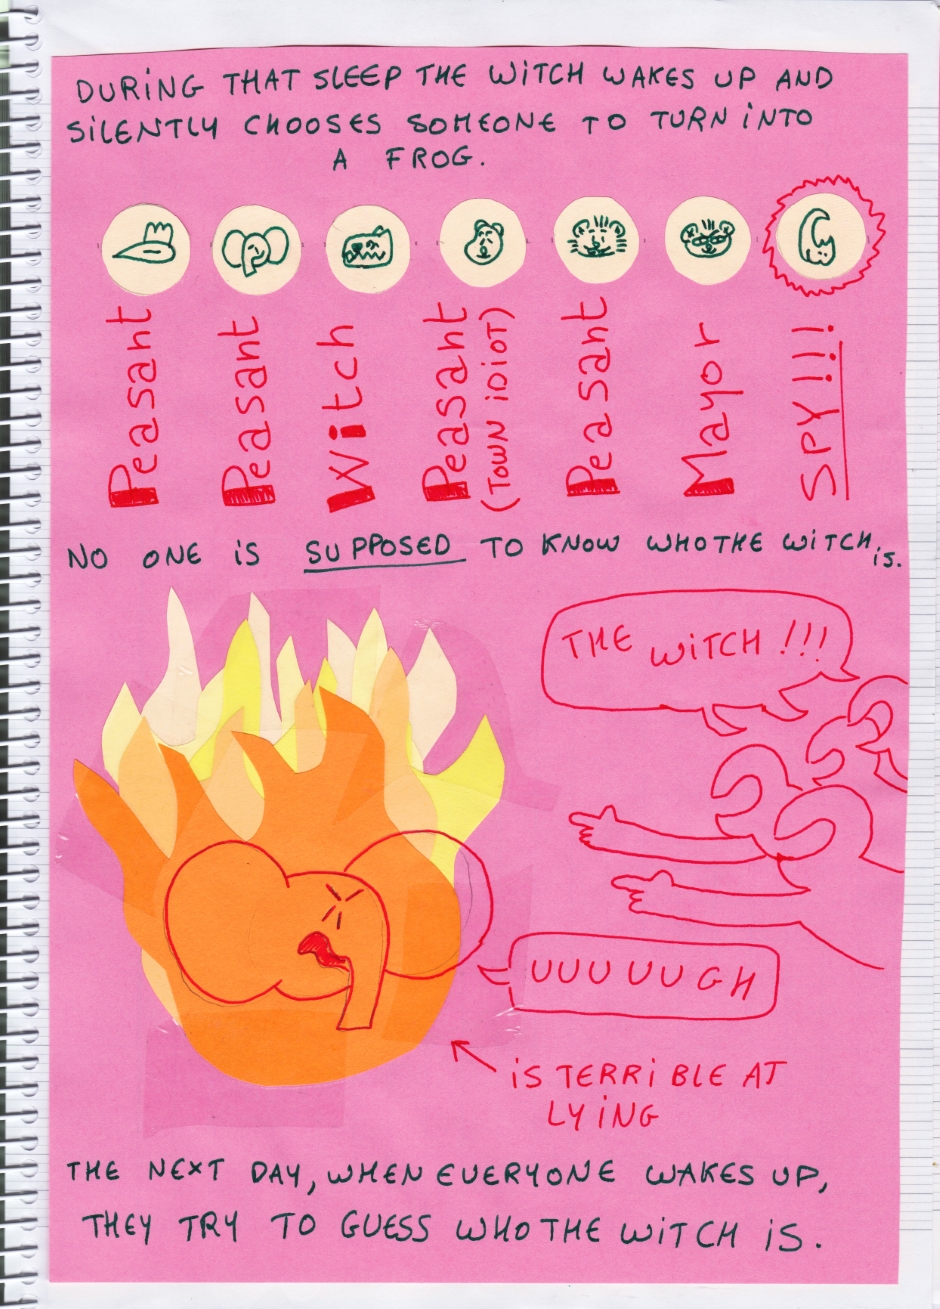 DURING THAT SLEEP THE WITCH WAKES UP AND
SILENTLY CHOOSES SOMEONE TO TURN INTO
A FROG.
Peasant
Peasant
Witch
Peasant
(TOWN IDIOT)
Peasant
Mayor
SPY!!!
NO ONE IS SUPPOSED TO KNOW WHO THE WITCH is.
THE WITCH!!!
UUUUUGH
IS TERRIBLE AT
LYING
THE NEXT DAY, WHEN EVERYONE WAKES UP,
THEY TRY TO GUESS WHO THE WITCH IS.